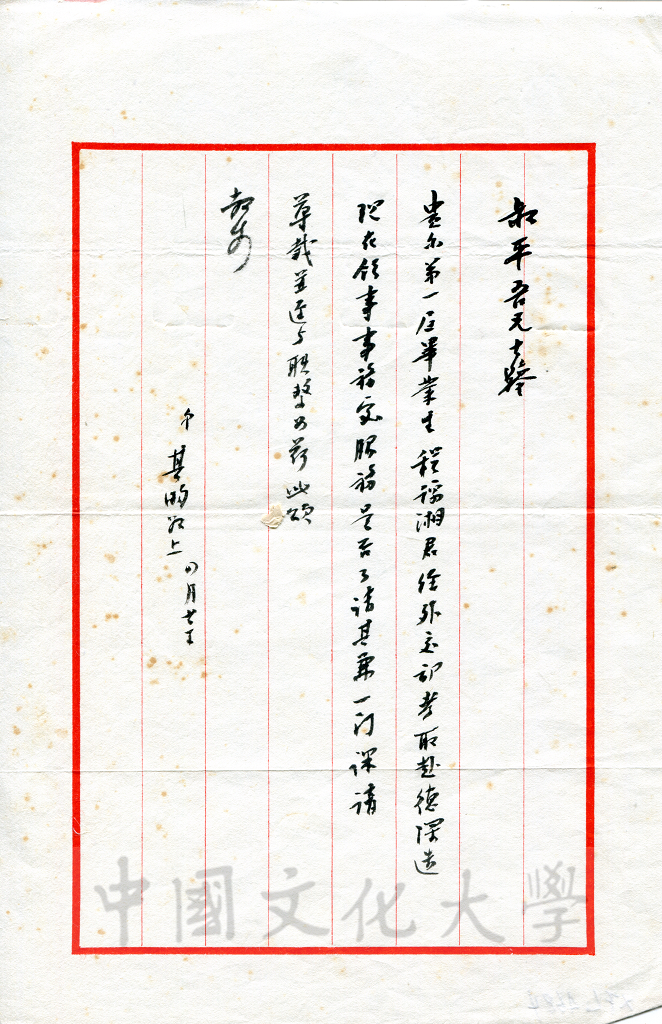 叔平吾兄大鑒
貴系第一屆畢業生程㵮湘君經外交部考取赴德深造
現在領事事務處服務是否可請其兼一門課請
尊裁並逕與聯繫為荷此頌
教安
弟其昀敬上四月廿五
中國文化大學